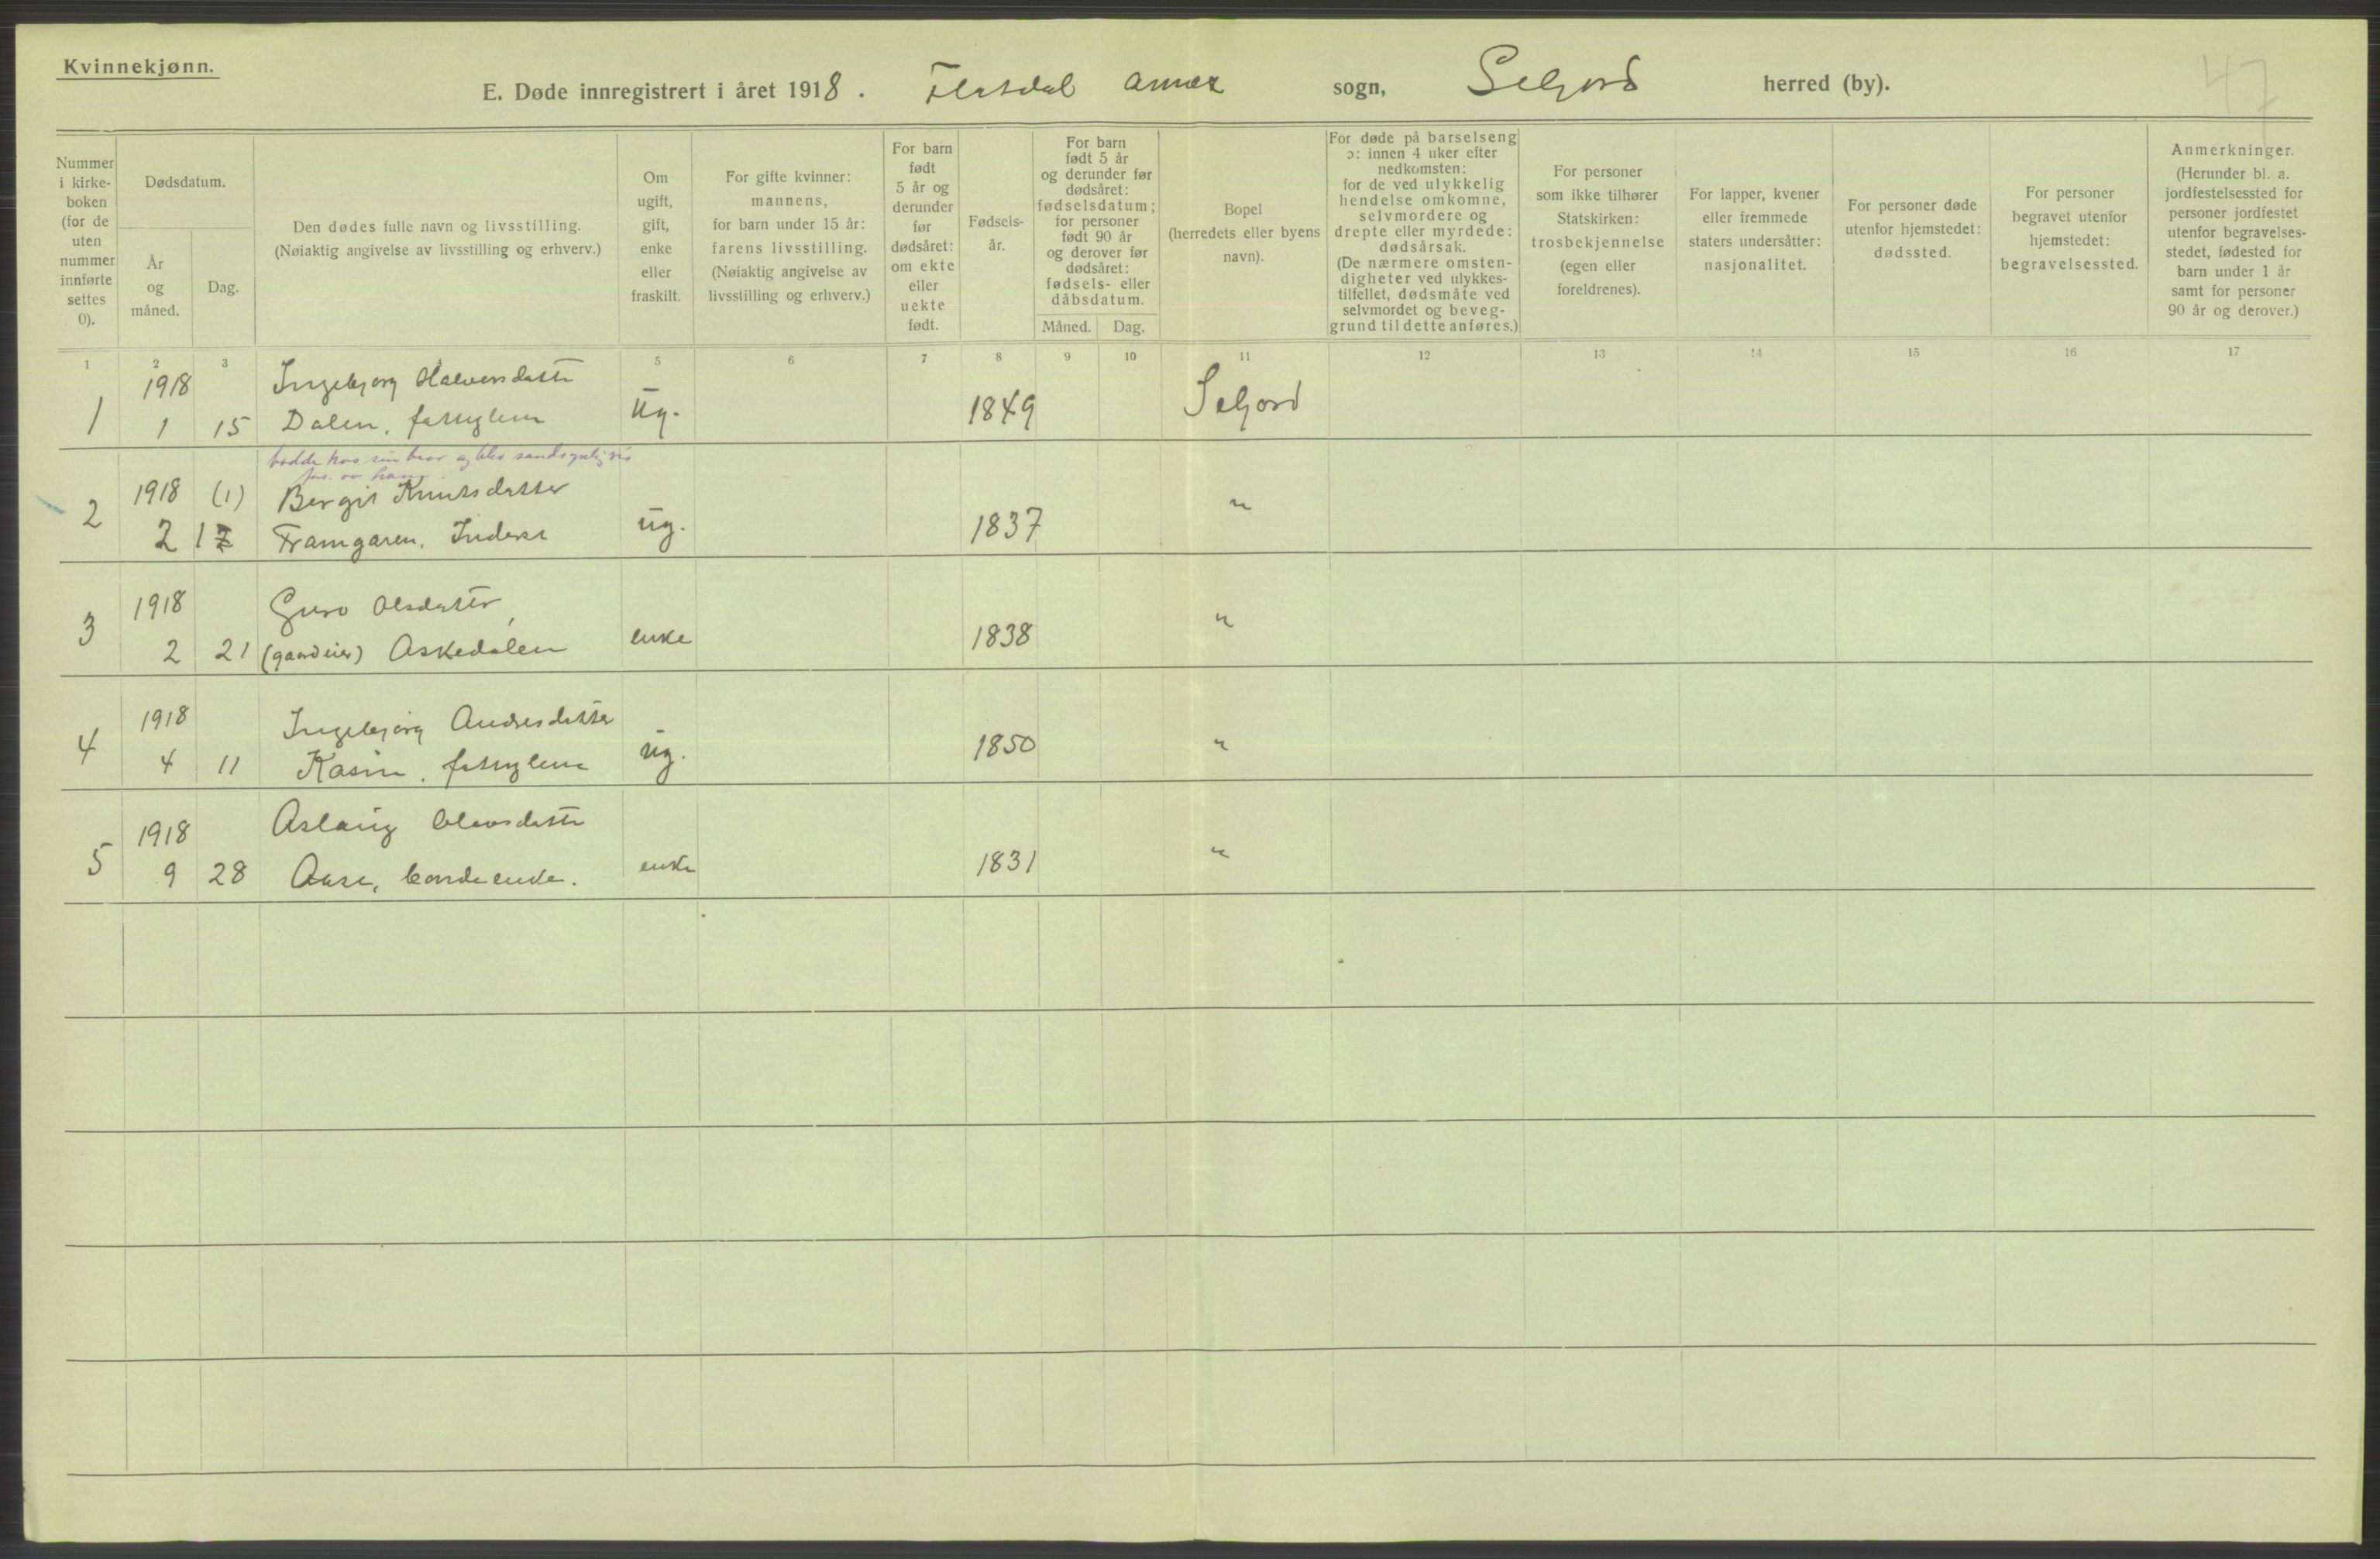 Kvinnekjønn.
E. Døde innregistrert i året 1918. Flatdal annex sogn, Seljord herred (by).
47
Nummer i kirkeboken (for de uten nummer innførte settes 0).
Dødsdatum.
År og måned.
Dag.
Den dødes fulle navn og livsstilling.
(Nøiaktig angivelse av livsstilling og erhverv.)
Om ugift, gift, enke eller fraskilt.
For gifte kvinner: mannens, for barn under 15 år: farens livsstilling. (Nøiaktig angivelse av livsstilling og erhverv.)
For barn født 5 år og derunder før dødsåret: om ekte eller uekte født.
Fødsels-år.
For barn født 5 år og derunder før dødsåret: fødselsdatum; for personer født 90 år og derover før dødsåret: fødsels- eller dåbsdatum.
Måned. Dag.
Bopel (herredets eller byens navn).
For døde på barselseng ɔ: innen 4 uker efter nedkomsten: for de ved ulykkelig hendelse omkomne, selvmordere og drepte eller myrdede: dødsårsak. (De nærmere omsten-digheter ved ulykkes-tilfellet, dødsmåte ved selvmordet og beveg-grund til dette anføres.)
For personer som ikke tilhører Statskirken: trosbekjennelse (egen eller foreldrenes).
For lapper, kvener eller fremmede staters undersåtter: nasjonalitet.
For personer døde utenfor hjemstedet: dødssted.
For personer begravet utenfor hjemstedet: begravelsessted.
Anmerkninger. (Herunder bl. a. jordfestelsessted for personer jordfestet utenfor begravelses-stedet, fødested for barn under 1 år samt for personer 90 år og derover.)
1 2 3 5 6 7 8 9 10 11 12 13 14 15 16 17
1918 Ingebjorg Halvorsdatter
1 1 15 Dalen, fattiglem ug. 1849 Seljord
bodde hos sin bror og blev sandsynligvis
fors. av ham.
1918 (1) Bergit Knutsdatter
2 2 17 Framgaren, Inderst ug. 1837 "
1918 Guro Olsdatter,
3 2 21 (gaardeier) Askedalen enke 1838 "
1918 Ingebjørg Andresdatter
4 4 11 Kasin, fattiglem ug. 1850 "
1918 Aslaug Olavsdatter
5 9 28 Aase, bondeenke. enke 1831 "